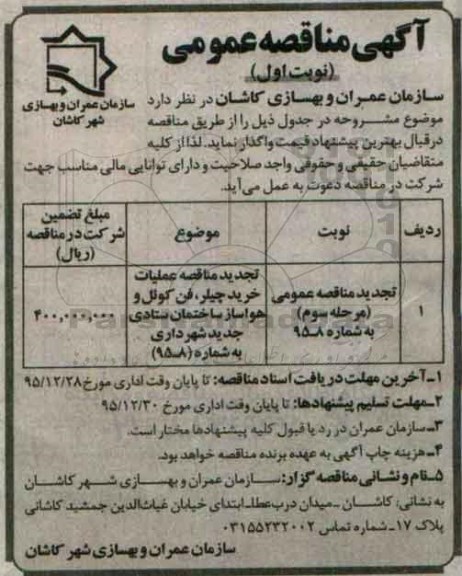 آگهی مناقصه عمومی
(نوبت اول)
سازمان عمران و بهسازی
شهر کاشان
سازمان عمران و بهسازی کاشان در نظر دارد
موضوع مشروحه در جدول ذیل را از طریق مناقصه
در قبال بهترین پیشنهاد قیمت واگذار نماید. لذا از کلیه
متقاضیان حقیقی و حقوقی واجد صلاحیت و دارای توانایی مالی مناسب جهت
شرکت در مناقصه دعوت به عمل می‌آید.
ردیف
نوبت
موضوع
مبلغ تضمین
شرکت در مناقصه
(ریال)
۱
تجدید مناقصه عمومی
(مرحله سوم)
به شماره ۸-۹۵
تجدید مناقصه عملیات
خرید چیلر، فن کوئل و
هواساز ساختمان ستادی
جدید شهرداری
به شماره (۸-۹۵)
۴۰۰,۰۰۰,۰۰۰
۱- آخرین مهلت دریافت اسناد مناقصه: تا پایان وقت اداری مورخ ۹۵/۱۲/۲۸
۲- مهلت تسلیم پیشنهادها: تا پایان وقت اداری مورخ ۹۵/۱۲/۳۰
۳- سازمان عمران در رد یا قبول کلیه پیشنهادها مختار است.
۴- هزینه چاپ آگهی به عهده برنده مناقصه خواهد بود.
۵- نام و نشانی مناقصه گزار: سازمان عمران و بهسازی شهر کاشان
به نشانی: کاشان - میدان درب عطا - ابتدای خیابان غیاث‌الدین جمشید کاشانی
پلاک ۱۷ - شماره تماس ۰۳۱۵۵۲۳۲۰۰۲
سازمان عمران و بهسازی شهر کاشان